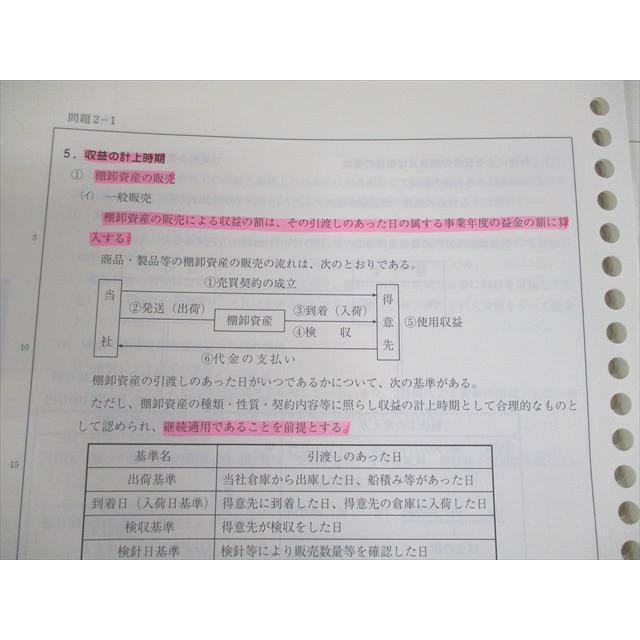 問題2-1
5．収益の計上時期
① 棚卸資産の販売
(イ) 一般販売
棚卸資産の販売による収益の額は、その引渡しのあった日の属する事業年度の益金の額に算
5
入する。
商品・製品等の棚卸資産の販売の流れは、次のとおりである。
①売買契約の成立
当社
②発送（出荷）
棚卸資産
③到着（入荷）
④検　収
得意先
⑤使用収益
10
⑥代金の支払い
棚卸資産の引渡しのあった日がいつであるかについて、次の基準がある。
ただし、棚卸資産の種類・性質・契約内容等に照らし収益の計上時期として合理的なものと
して認められ、継続適用であることを前提とする。
15
基準名　引渡しのあった日
出荷基準　当社倉庫から出庫した日、船積み等があった日
到着日（入荷日基準）　得意先に到着した日、得意先の倉庫に入荷した日
検収基準　得意先が検収をした日
検針日基準　検針等により販売数量等を確認した日